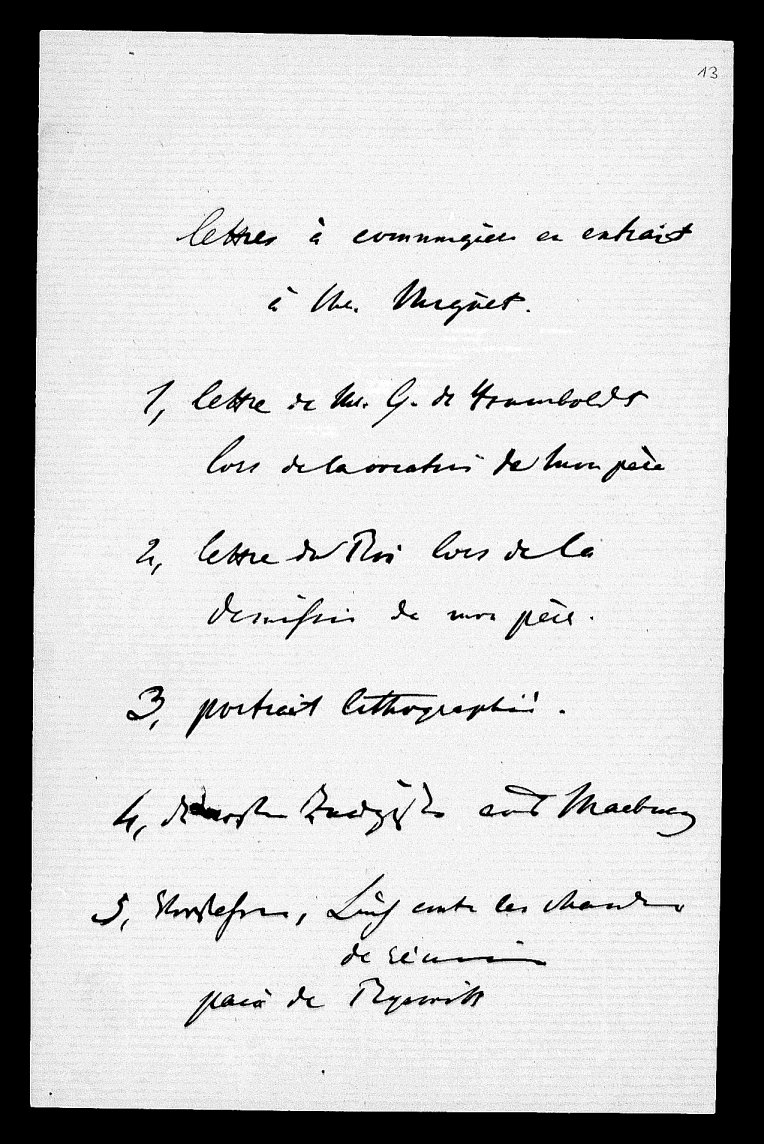 13
lettres à communiquer en extrait
à Mr. Mignet.
1, lettre de Mr. G. de Houmboldt
lors de la vocation de mon père
2, lettre du Roi lors de la
demission de mon père.
3, portrait lithographié.
4, aus Marburg
5, contre les chambres
de réunion
paix de Ryswick